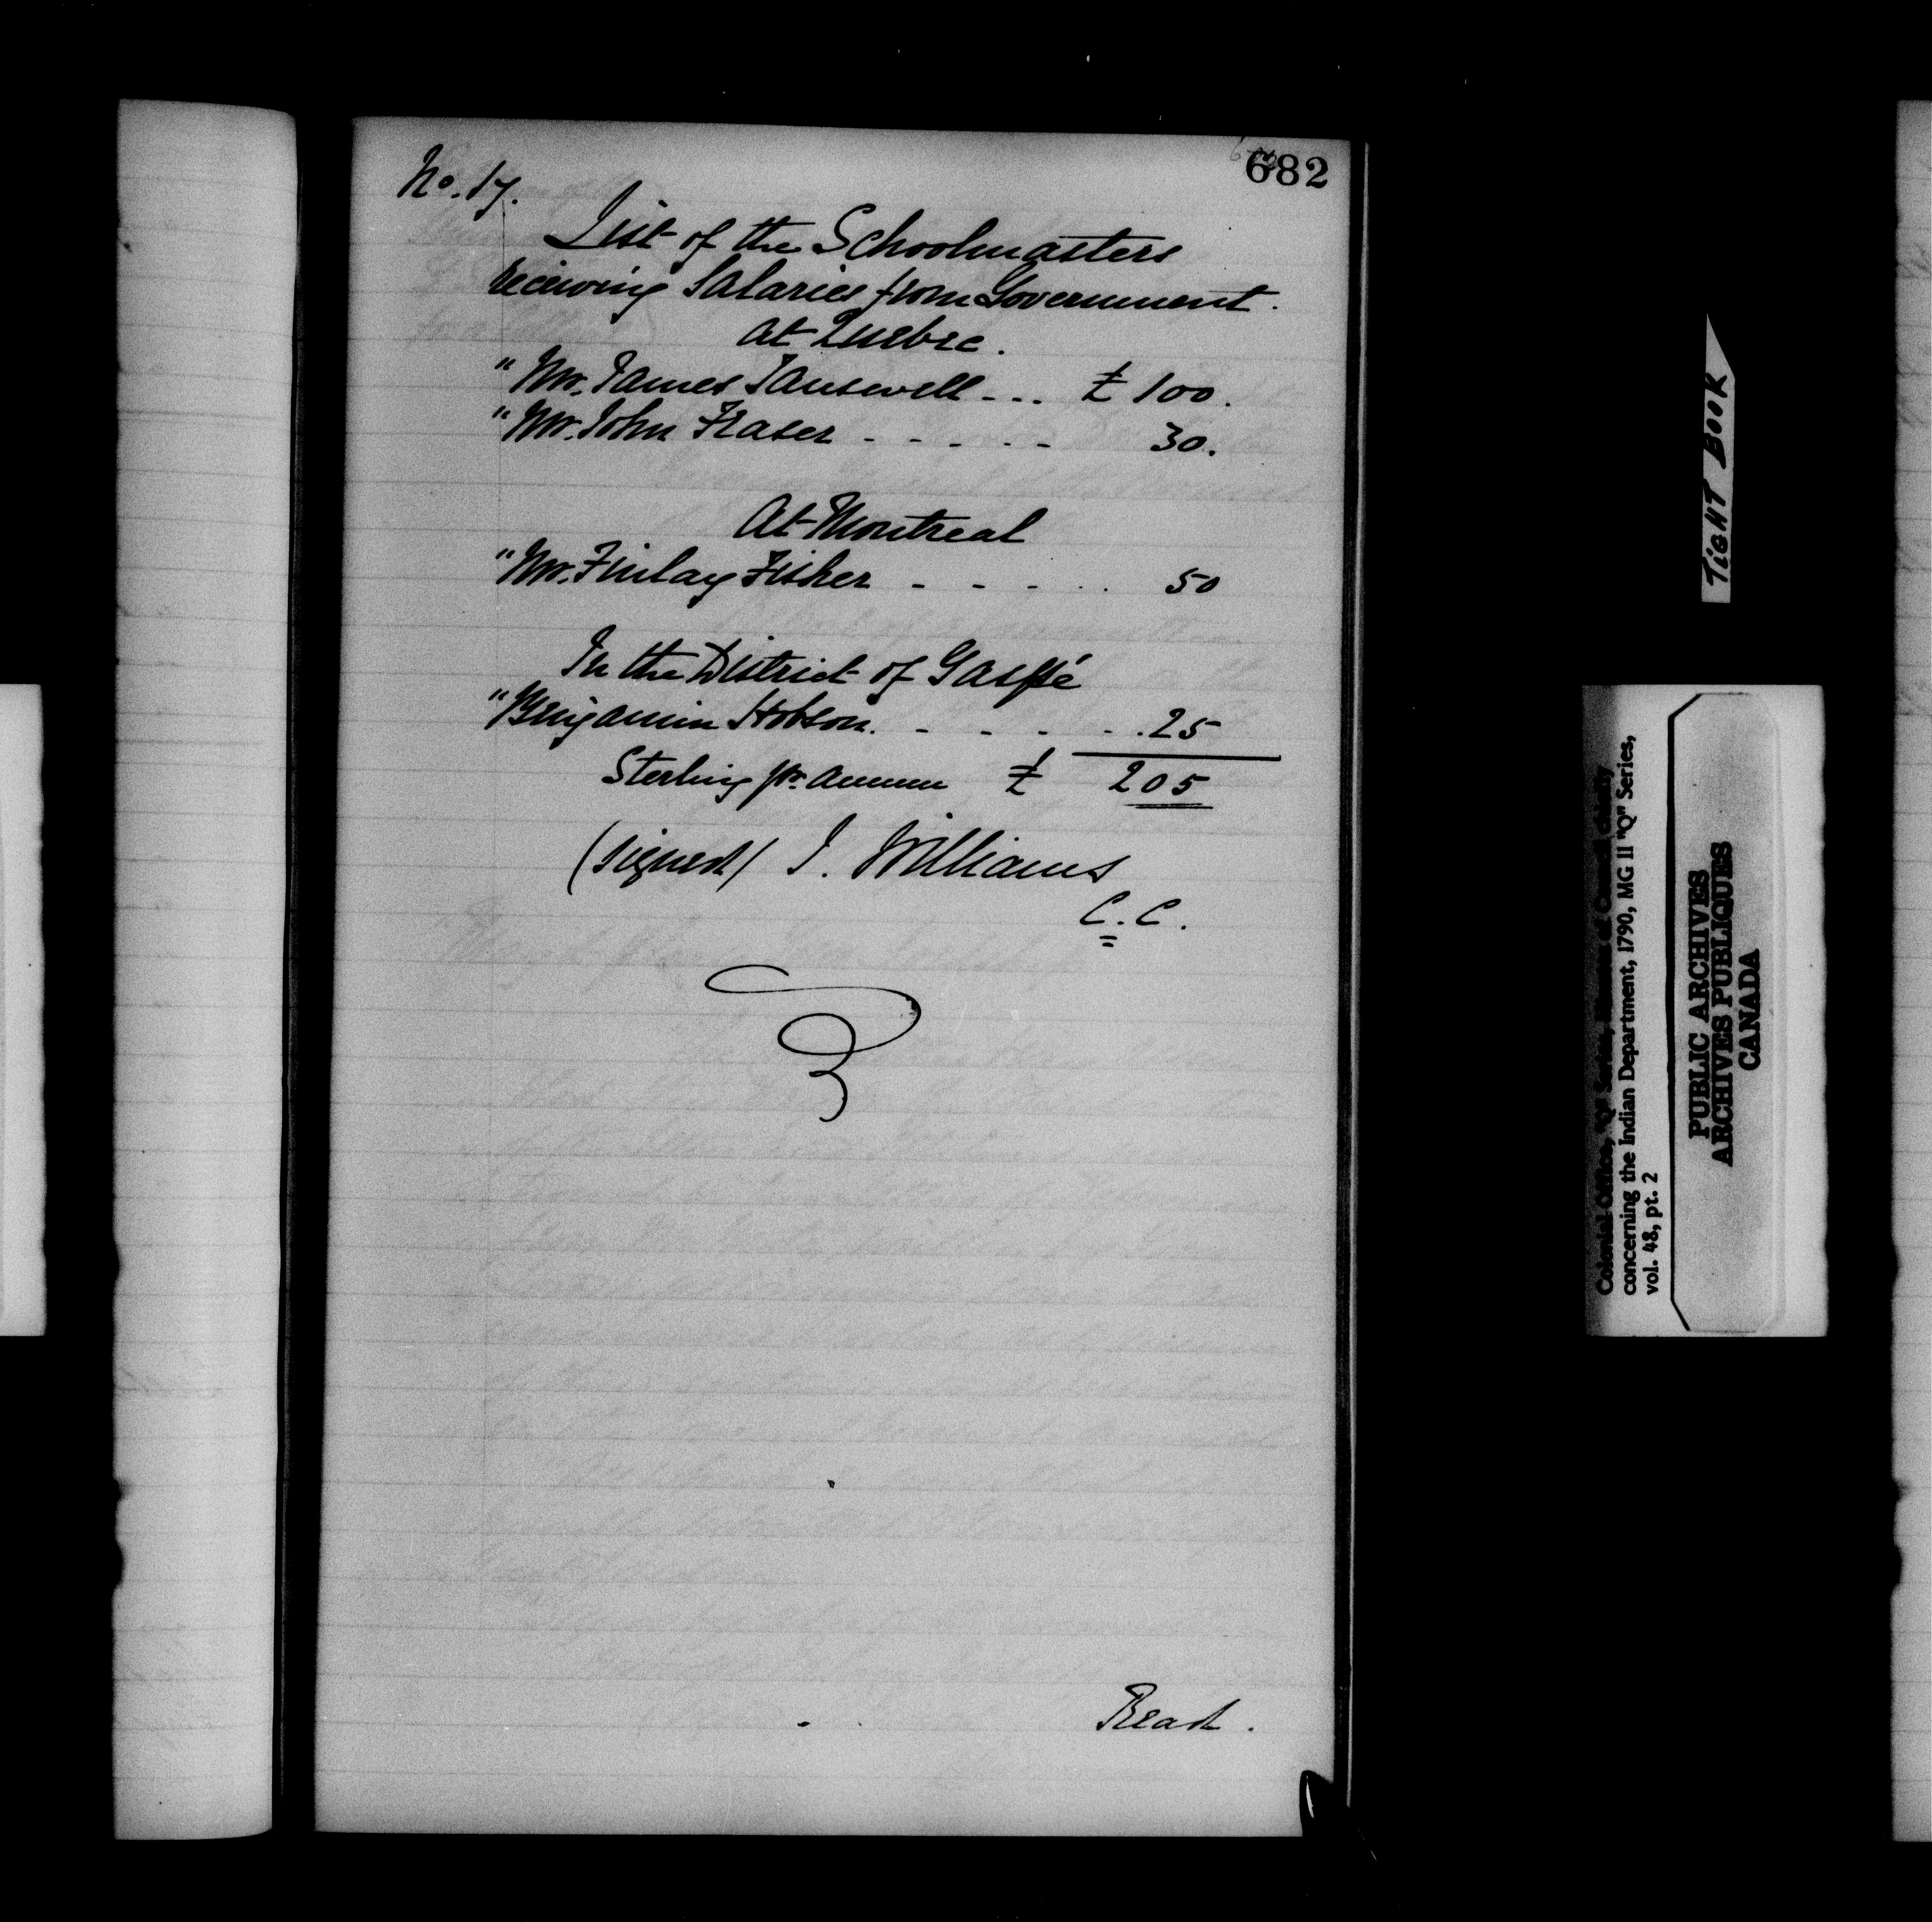 682
No. 17.
List of the Schoolmasters
receiving Salaries from Government.
at Quebec.
"Mr. James Tanswell - - - £ 100.
"Mr. John Fraser - - - - - 30.
At Montreal
"Mr. Finlay Fisher - - - - . 50
In the District of Gaspé
"Benjamin Hobson. - - - - . 25
Sterling pr. annum £ 205
(signed) J. Williams
C. C.
Read.
TIGHT BOOK
Colonial Office, "Q" Series, Minutes of Council chiefly
concerning the Indian Department, 1790, MG 11 "Q" Series,
vol. 48, pt. 2
PUBLIC ARCHIVES
ARCHIVES PUBLIQUES
CANADA